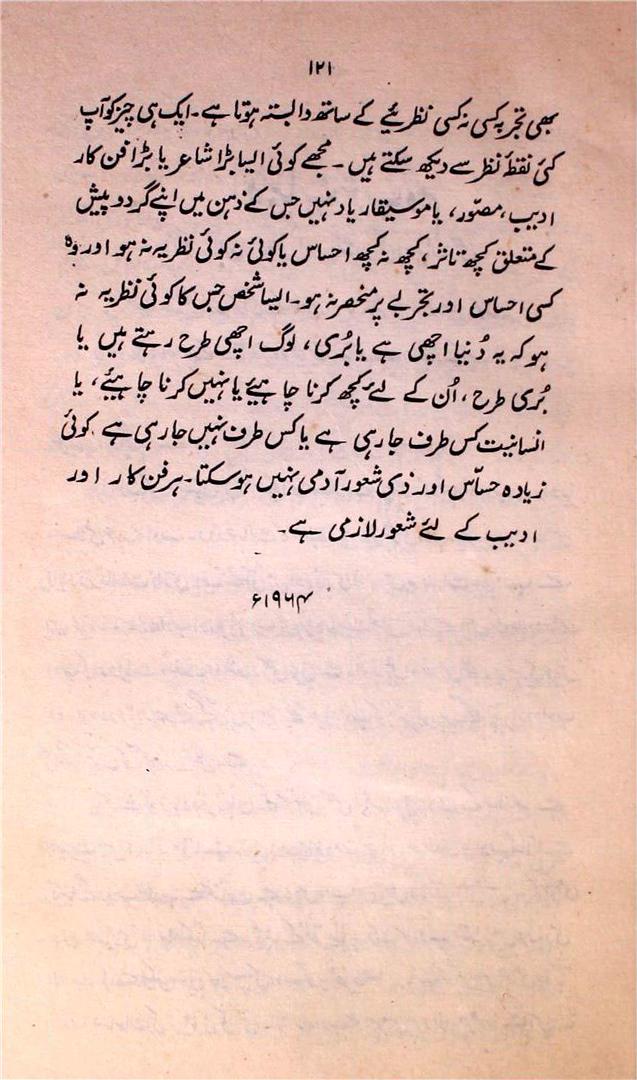 ۱۲۱
بھی تجربہ کسی نہ کسی نظریئے کے ساتھ وابستہ ہوتا ہے۔ ایک ہی چیز کو آپ
کئی نقطۂ نظر سے دیکھ سکتے ہیں۔ مجھے کوئی ایسا بڑا شاعر یا بڑا فن کار
ادیب، مصّور، یا موسیقار یاد نہیں جس کے ذہن میں اپنے گردوپیش
کے متعلق کچھ تاثر، کچھ نہ کچھ احساس یا کوئی نہ کوئی نظریہ نہ ہو اور وہ
کسی احساس اور تجربے پر منحصر نہ ہو۔ ایسا شخص جس کا کوئی نظریہ نہ
ہو کہ یہ دُنیا اچھی ہے یا بُری، لوگ اچھی طرح رہتے ہیں یا
بُری طرح، اُن کے لئے کچھ کرنا چاہیئے یا نہیں کرنا چاہیئے، یا
انسانیت کس طرف جا رہی ہے یا کس طرف نہیں جا رہی ہے۔ کوئی
زیادہ حسّاس اور ذی شعور آدمی نہیں ہو سکتا۔ ہر فن کار اور
ادیب کے لئے شعور لازمی ہے۔
۱۹۶۴ء